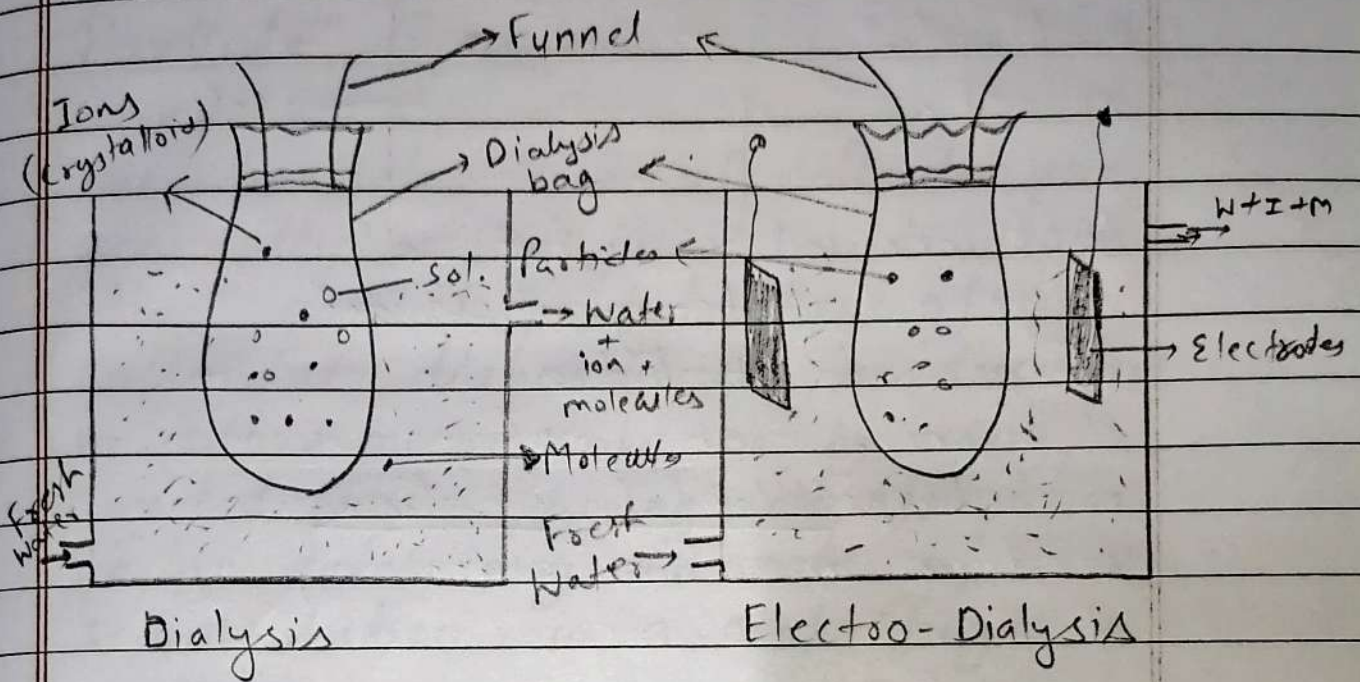 Funnel
Ions
(Crystalloid)
Dialysis
bag
W+I+M
Sol.
Particles
Water
+
ion +
molecules
Electrodes
Molecules
Fresh
Water
Fresh
Water
Dialysis
Electro-Dialysis